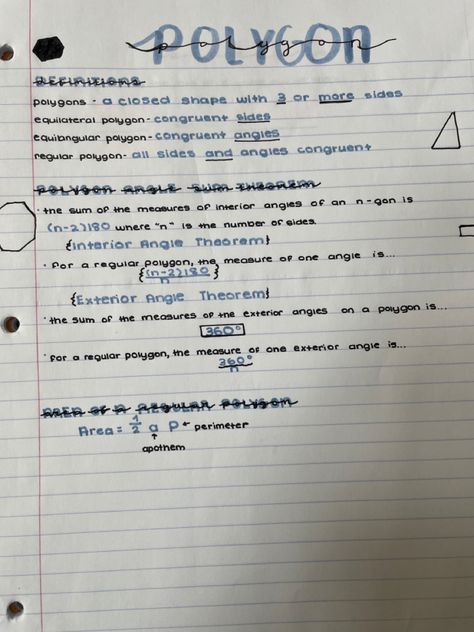 POLYGON
polygon
DEFINITIONS
polygons - a closed shape with 3 or more sides
equilateral polygon - congruent sides
equiangular polygon - congruent angles
regular polygon - all sides and angles congruent
POLYGON ANGLE SUM THEOREM
· the sum of the measures of interior angles of an n-gon is
(n-2)180 where "n" is the number of sides.
{Interior Angle Theorem}
· For a regular polygon, the measure of one angle is...
{(n-2)180/n}
{Exterior Angle Theorem}
· the sum of the measures of the exterior angles on a polygon is...
360°
· For a regular polygon, the measure of one exterior angle is...
360°/n
AREA OF A REGULAR POLYGON
Area = 1/2 a P ← perimeter
↑
apothem